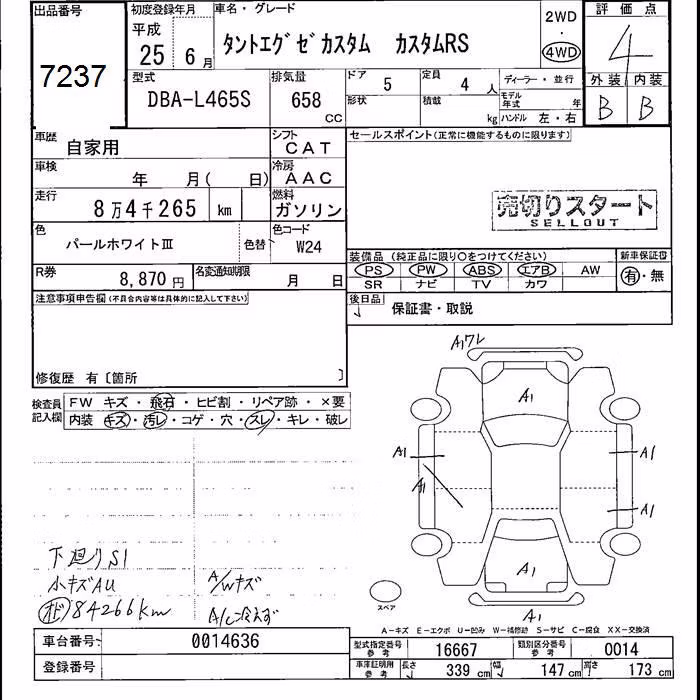 出品番号
7237
初度登録年月
平成
25年 6月
車名・グレード
タントエグゼカスタム カスタムRS
2WD
・
4WD
評価点
4
外装 内装
B B
型式
DBA-L465S
排気量
658
CC
ドア
5
定員
4人
形状
積載
kg
ディーラー・並行
モデル年式 年
ハンドル 左・右
車歴
自家用
シフト
CAT
車検
年 月( 日)
冷房
AAC
走行
8万4千265 km
燃料
ガソリン
色
パールホワイトⅢ
色替
色コード
W24
R券
8,870円
名変通知期限
月 日
セールスポイント(正常に機能するものに限ります)
売切りスタート
SELLOUT
装備品 (純正品に限り○をつけてください)
PS PW ABS エアB AW
SR ナビ TV カワ
新車保証書
有・無
後日品
保証書・取説
注意事項申告欄(不具合内容等は具体的に記入して下さい)
修復歴 有〔箇所 〕
検査員記入欄
FW キズ・飛石・ヒビ割・リペア跡・×要
内装 キズ・汚レ・コゲ・穴・スレ・キレ・破レ
下廻りS1
小キズAU
84266km
A/Wキズ
A/C冷えず
A1ワレ
A1
A1
A1
A1
A1
A1
A1
スペア
A－キズ E－エクボ U－凹み W－補修跡 S－サビ C－腐食 XX－交換済
車台番号
0014636
登録番号
型式指定番号 参考
16667
類別区分番号 参考
0014
車庫証明用 参考
長さ 339 cm 幅 147 cm 高さ 173 cm